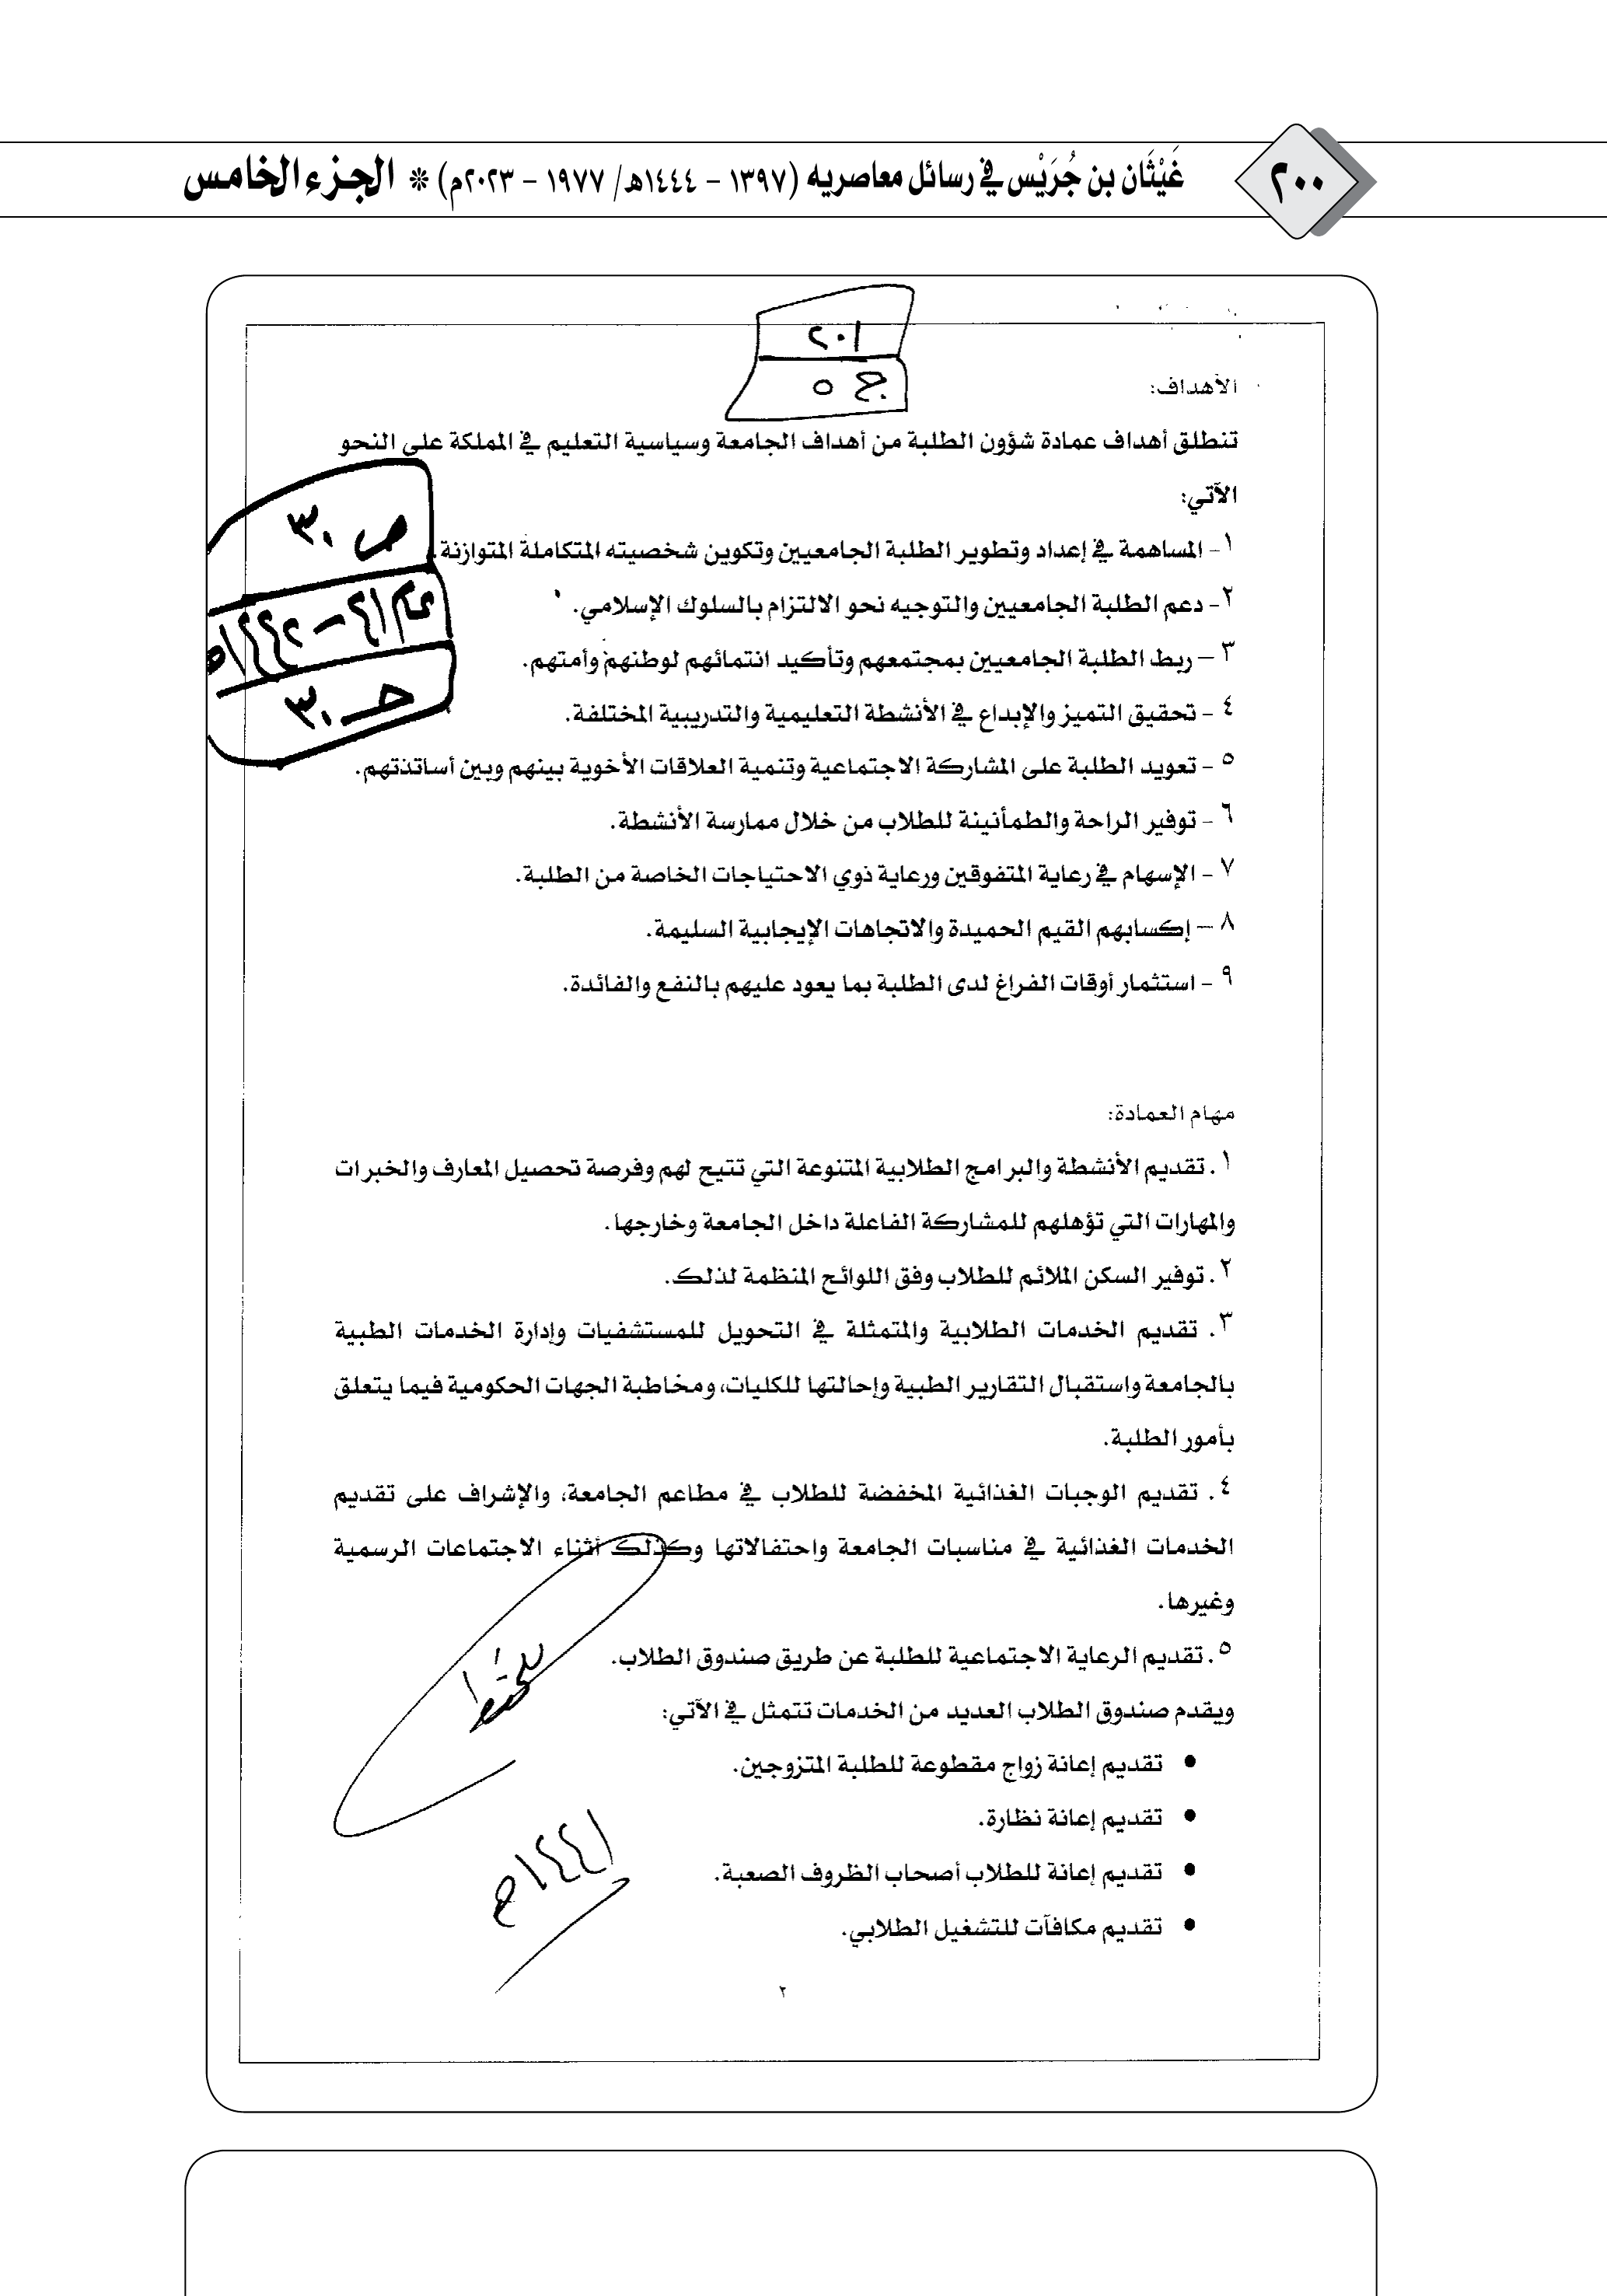 ٢٠٠
غَيْثَان بن جُرَيْس في رسائل معاصريه (١٣٩٧ - ١٤٤٤هـ/ ١٩٧٧ - ٢٠٢٣م) * الجزء الخامس
٢٠١
ج ٥
الأهداف:
تنطلق أهداف عمادة شؤون الطلبة من أهداف الجامعة وسياسية التعليم في المملكة على النحو
الآتي:
ص ٣٠
١- المساهمة في إعداد وتطوير الطلبة الجامعيين وتكوين شخصيته المتكاملة المتوازنة.
عام ٤١ – ١٤٤٢هـ
٢- دعم الطلبة الجامعيين والتوجيه نحو الالتزام بالسلوك الإسلامي.
٣ – ربط الطلبة الجامعيين بمجتمعهم وتأكيد انتمائهم لوطنهم وأمتهم.
حـ ٣٠
٤ - تحقيق التميز والإبداع في الأنشطة التعليمية والتدريبية المختلفة.
٥ - تعويد الطلبة على المشاركة الاجتماعية وتنمية العلاقات الأخوية بينهم وبين أساتذتهم.
٦ - توفير الراحة والطمأنينة للطلاب من خلال ممارسة الأنشطة.
٧ - الإسهام في رعاية المتفوقين ورعاية ذوي الاحتياجات الخاصة من الطلبة.
٨ – إكسابهم القيم الحميدة والاتجاهات الإيجابية السليمة.
٩ - استثمار أوقات الفراغ لدى الطلبة بما يعود عليهم بالنفع والفائدة.
مهام العمادة:
١. تقديم الأنشطة والبرامج الطلابية المتنوعة التي تتيح لهم وفرصة تحصيل المعارف والخبرات
والمهارات التي تؤهلهم للمشاركة الفاعلة داخل الجامعة وخارجها.
٢. توفير السكن الملائم للطلاب وفق اللوائح المنظمة لذلك.
٣. تقديم الخدمات الطلابية والمتمثلة في التحويل للمستشفيات وإدارة الخدمات الطبية
بالجامعة واستقبال التقارير الطبية وإحالتها للكليات، ومخاطبة الجهات الحكومية فيما يتعلق
بأمور الطلبة.
٤. تقديم الوجبات الغذائية المخفضة للطلاب في مطاعم الجامعة، والإشراف على تقديم
الخدمات الغذائية في مناسبات الجامعة واحتفالاتها وكذلك أثناء الاجتماعات الرسمية
وغيرها.
٥. تقديم الرعاية الاجتماعية للطلبة عن طريق صندوق الطلاب.
ويقدم صندوق الطلاب العديد من الخدمات تتمثل في الآتي:
• تقديم إعانة زواج مقطوعة للطلبة المتزوجين.
• تقديم إعانة نظارة.
• تقديم إعانة للطلاب أصحاب الظروف الصعبة.
١٤٤١هـ
• تقديم مكافآت للتشغيل الطلابي.
٢